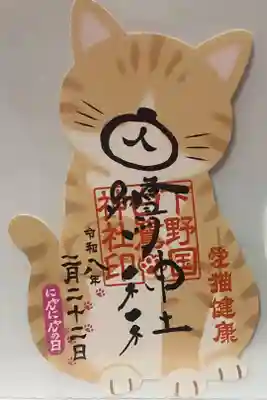 愛猫健康
下野国
神社印
神社
令和八年
二月二十二日
にゃんにゃんの日